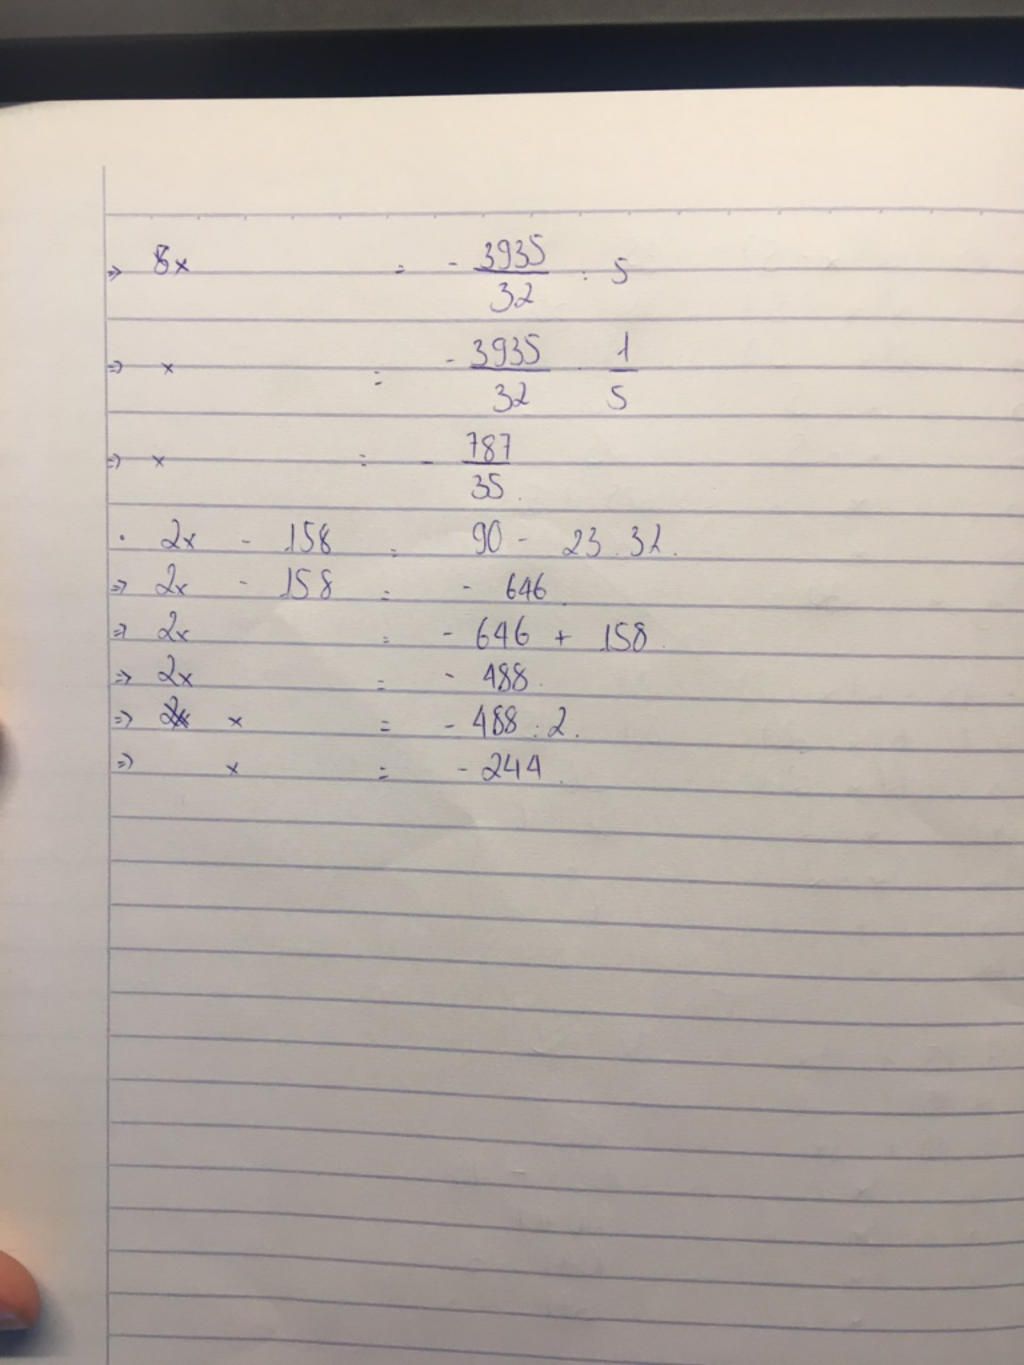 => 8x = - 3935/32 : 5
=> x = - 3935/32 . 1/5
=> x = - 787/35.
. 2x - 158 = 90 - 23.32.
=> 2x - 158 = - 646.
=> 2x = - 646 + 158.
=> 2x = - 488.
=> x = - 488 : 2.
=> x = - 244.